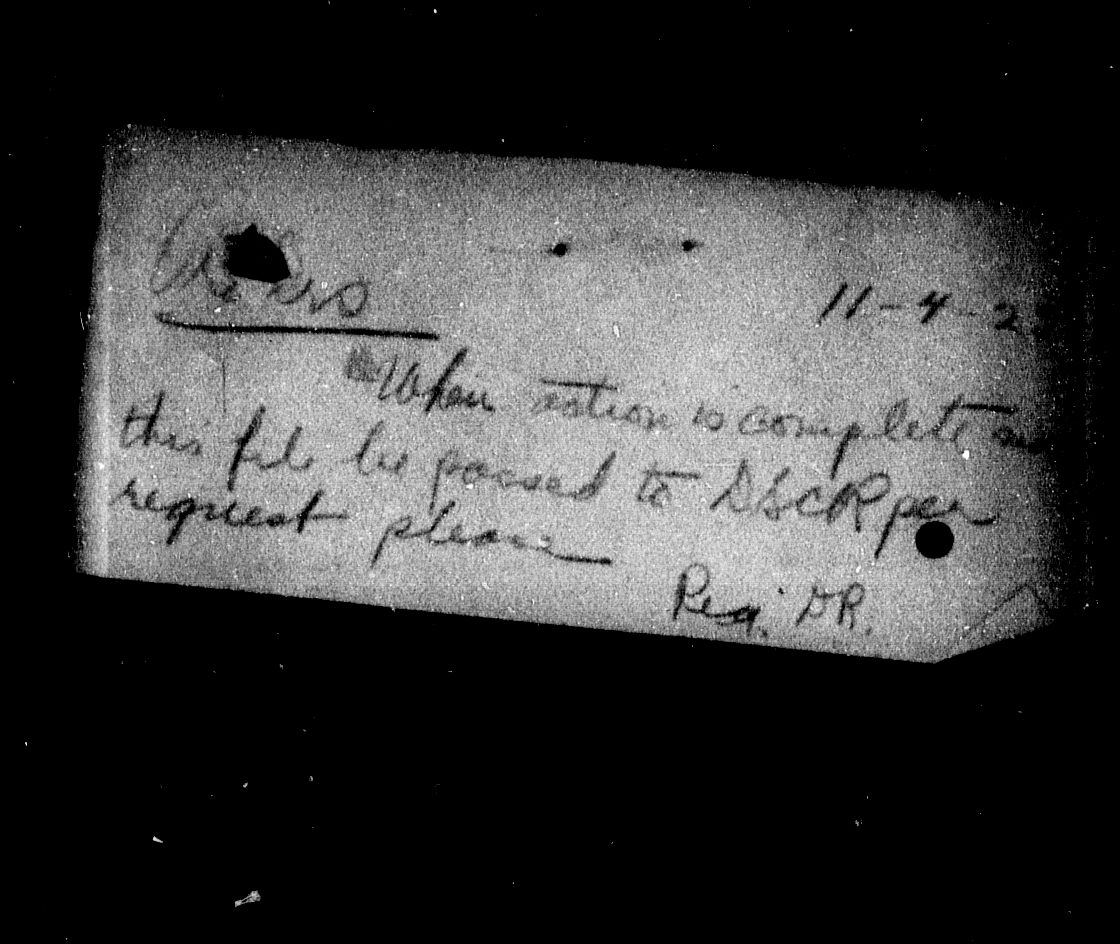 11-4-2
When action is complete on
this file be passed to DSCR per
request please
Reg. DR.